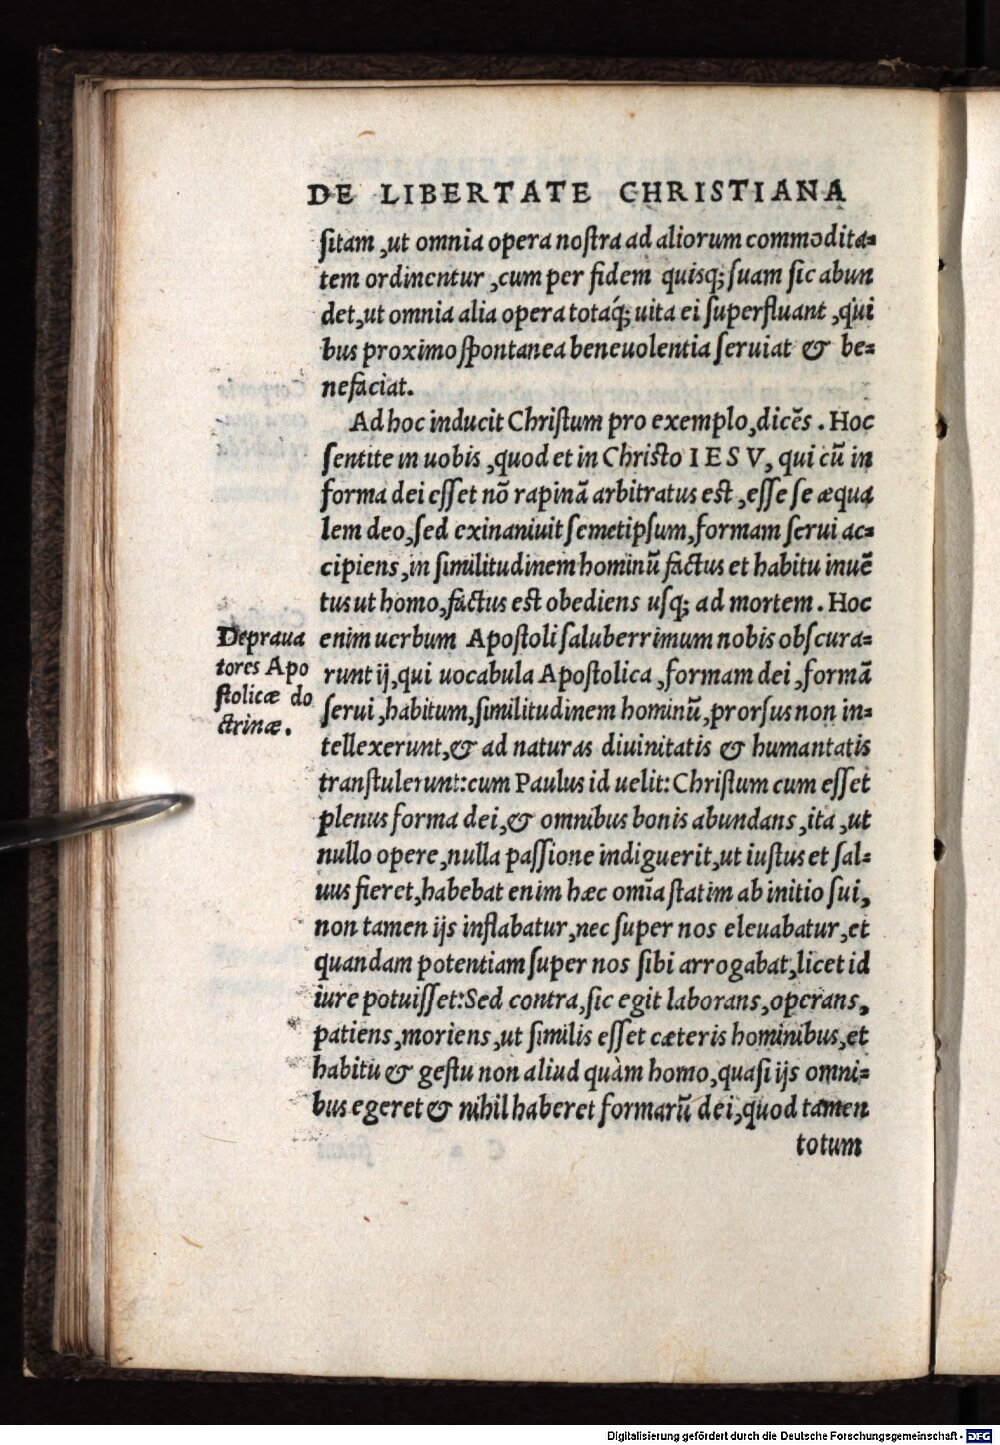 DE LIBERTATE CHRISTIANA
ſitam ,ut omnia opera noſtra ad aliorum commodita=
tem ordinentur ,cum per fidem quisq; ſuam ſic abun
det,ut omnia alia opera totaq́; uita ei ſuperfluant ,qui
bus proximo ſpontanea beneuolentia ſeruiat & be=
nefaciat.
Ad hoc inducit Chriſtum pro exemplo,dicẽs . Hoc
ſentite in uobis ,quod et in Chriſto IESV, qui cũ in
forma dei eſſet nõ rapinã arbitratus eſt ,eſſe ſe æqua
lem deo,ſed exinaniuit ſemetipſum,formam ſerui ac=
cipiens,in ſimilitudinem hominũ factus et habitu inuẽ
tus ut homo,factus eſt obediens uſq; ad mortem . Hoc
enim uerbum Apoſtoli ſaluberrimum nobis obſcura=
runt ij,qui uocabula Apoſtolica ,formam dei ,formã
ſerui ,habitum,ſimilitudinem hominũ,prorſus non in=
tellexerunt,& ad naturas diuinitatis & humantatis
tranſtulerunt:cum Paulus id uelit: Chriſtum cum eſſet
plenus forma dei,& omnibus bonis abundans ,ita ,ut
nullo opere,nulla paſſione indiguerit,ut iuſtus et ſal=
uus fieret,habebat enim hæc omĩa ſtatim ab initio ſui,
non tamen ijs inflabatur,nec ſuper nos eleuabatur,et
quandam potentiam ſuper nos ſibi arrogabat,licet id
iure potuiſſet:Sed contra,ſic egit laborans,operans,
patiens,moriens,ut ſimilis eſſet cæteris hominibus,et
habitu & geſtu non aliud quàm homo,quaſi ijs omni=
bus egeret & nihil haberet formarũ dei,quod tamen
totum
Depraua
tores Apo
ſtolicæ do
ctrinæ.
Digitalisierung gefördert durch die Deutsche Forschungsgemeinschaft - DFG